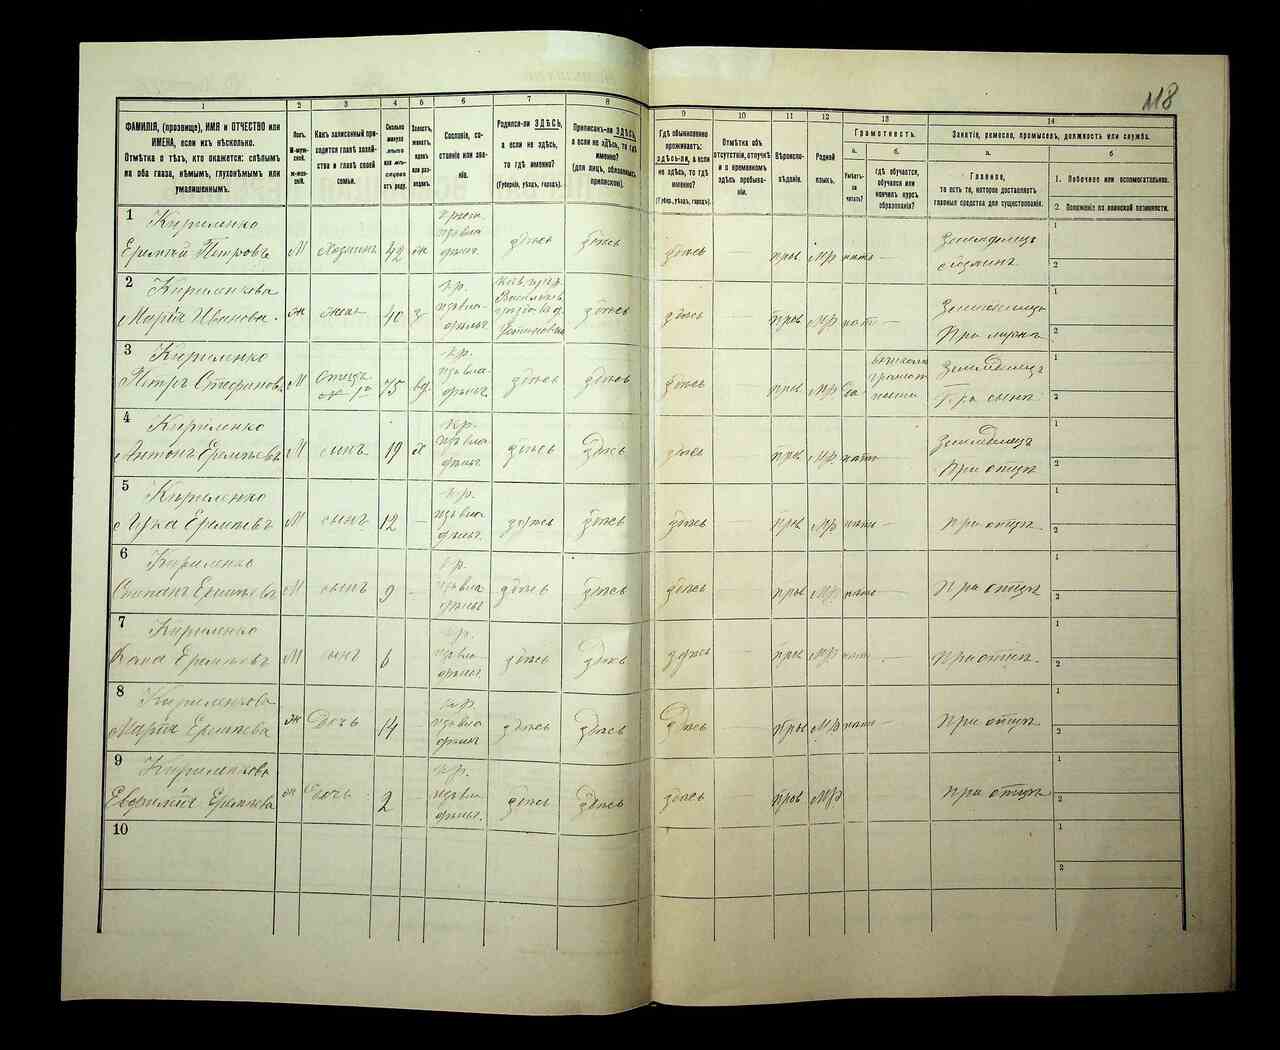 118
1 2 3 4 5 6 7 8 9 10 11 12 13 14
ФАМИЛІЯ, (прозвище), ИМЯ и ОТЧЕСТВО или
ИМЕНА, если ихъ нѣсколько.
Отмѣтка о тѣхъ, кто окажется: слѣпымъ
на оба глаза, нѣмымъ, глухонѣмымъ или
умалишеннымъ.
Полъ.
М-муж-
ской.
Ж-жен-
скій.
Какъ записанный при-
ходится главѣ хозяй-
ства и главѣ своей
семьи.
Сколько
минуло
лѣтъ
или мѣ-
сяцевъ
отъ роду.
Холостъ,
женатъ,
вдовъ
или раз-
веденъ.
Сословіе, со-
стояніе или зва-
ніе.
Родился-ли ЗДѢСЬ,
а если не здѣсь,
то гдѣ именно?
(Губернія, уѣздъ, городъ).
Приписанъ-ли ЗДѢСЬ,
а если не здѣсь, то гдѣ
именно?
(для лицъ, обязанныхъ
припискою).
Гдѣ обыкновенно
проживаетъ:
здѣсь-ли, а если
не здѣсь, то гдѣ
именно?
(Губер., уѣздъ, городъ).
Отмѣтка объ
отсутствіи, отлучкѣ
и о временномъ
здѣсь пребыва-
ніи.
Вѣроиспо-
вѣданіе.
Родной
языкъ.
Грамотность.
а. б.
Умѣетъ-
ли
читать?
гдѣ обучается,
обучался или
кончилъ курсъ
образованія?
Занятіе, ремесло, промыселъ, должность или служба.
а. б
Главное,
то есть то, которое доставляетъ
главныя средства для существованія.
1. Побочное или вспомогательное.
2. Положеніе по воинской повинности.
1 Кириленко
Еремѣй Петровъ М Хозяинъ 42 ж крест. изъ вла дѣльч. здѣсь здѣсь здѣсь — прав МР нѣтъ — Земледѣлецъ хозяинъ 1 2
2 Кириленкова
Марія Иванова ж жена 40 з кр. изъ вла- дѣльч. Кіев. губ. Васильк. здѣсь здѣсь — прав МР нѣтъ — Земледѣлецъ При мужѣ 1 2
3 Кириленко
Петръ М Отецъ 75 вд. кр. изъ вла дѣльч. здѣсь здѣсь здѣсь — прав МР Да Земледѣлецъ При сынѣ 1 2
4 Кириленко
Антонъ Еремѣевъ М сынъ 19 х кр. изъ вла дѣльч. здѣсь здѣсь здѣсь — прав МР нѣтъ Земледѣлецъ При отцѣ 1 2
5 Кириленко
Лука Еремѣевъ М сынъ 12 — кр. изъ вла дѣльч. здѣсь здѣсь здѣсь — прав МР нѣтъ — При отцѣ 1 2
6 Кириленко
Степанъ Еремѣевъ М сынъ 9 — кр. изъ вла дѣльч. здѣсь здѣсь здѣсь — прав МР нѣтъ При отцѣ 1 2
7 Кириленко
Еремѣевъ М сынъ 6 кр. изъ вла- дѣльч. здѣсь здѣсь здѣсь — прав МР нѣтъ При отцѣ 1 2
8 Кириленкова
Марія Еремѣева ж Дочь 14 кр. изъ вла дѣльч. здѣсь здѣсь здѣсь — прав МР нѣтъ — При отцѣ 1 2
9 Кириленкова
Евфимія Еремѣева ж Дочь 2 — кр. изъ вла- дѣльч. здѣсь здѣсь здѣсь — прав МР При отцѣ 1 2
10 1 2